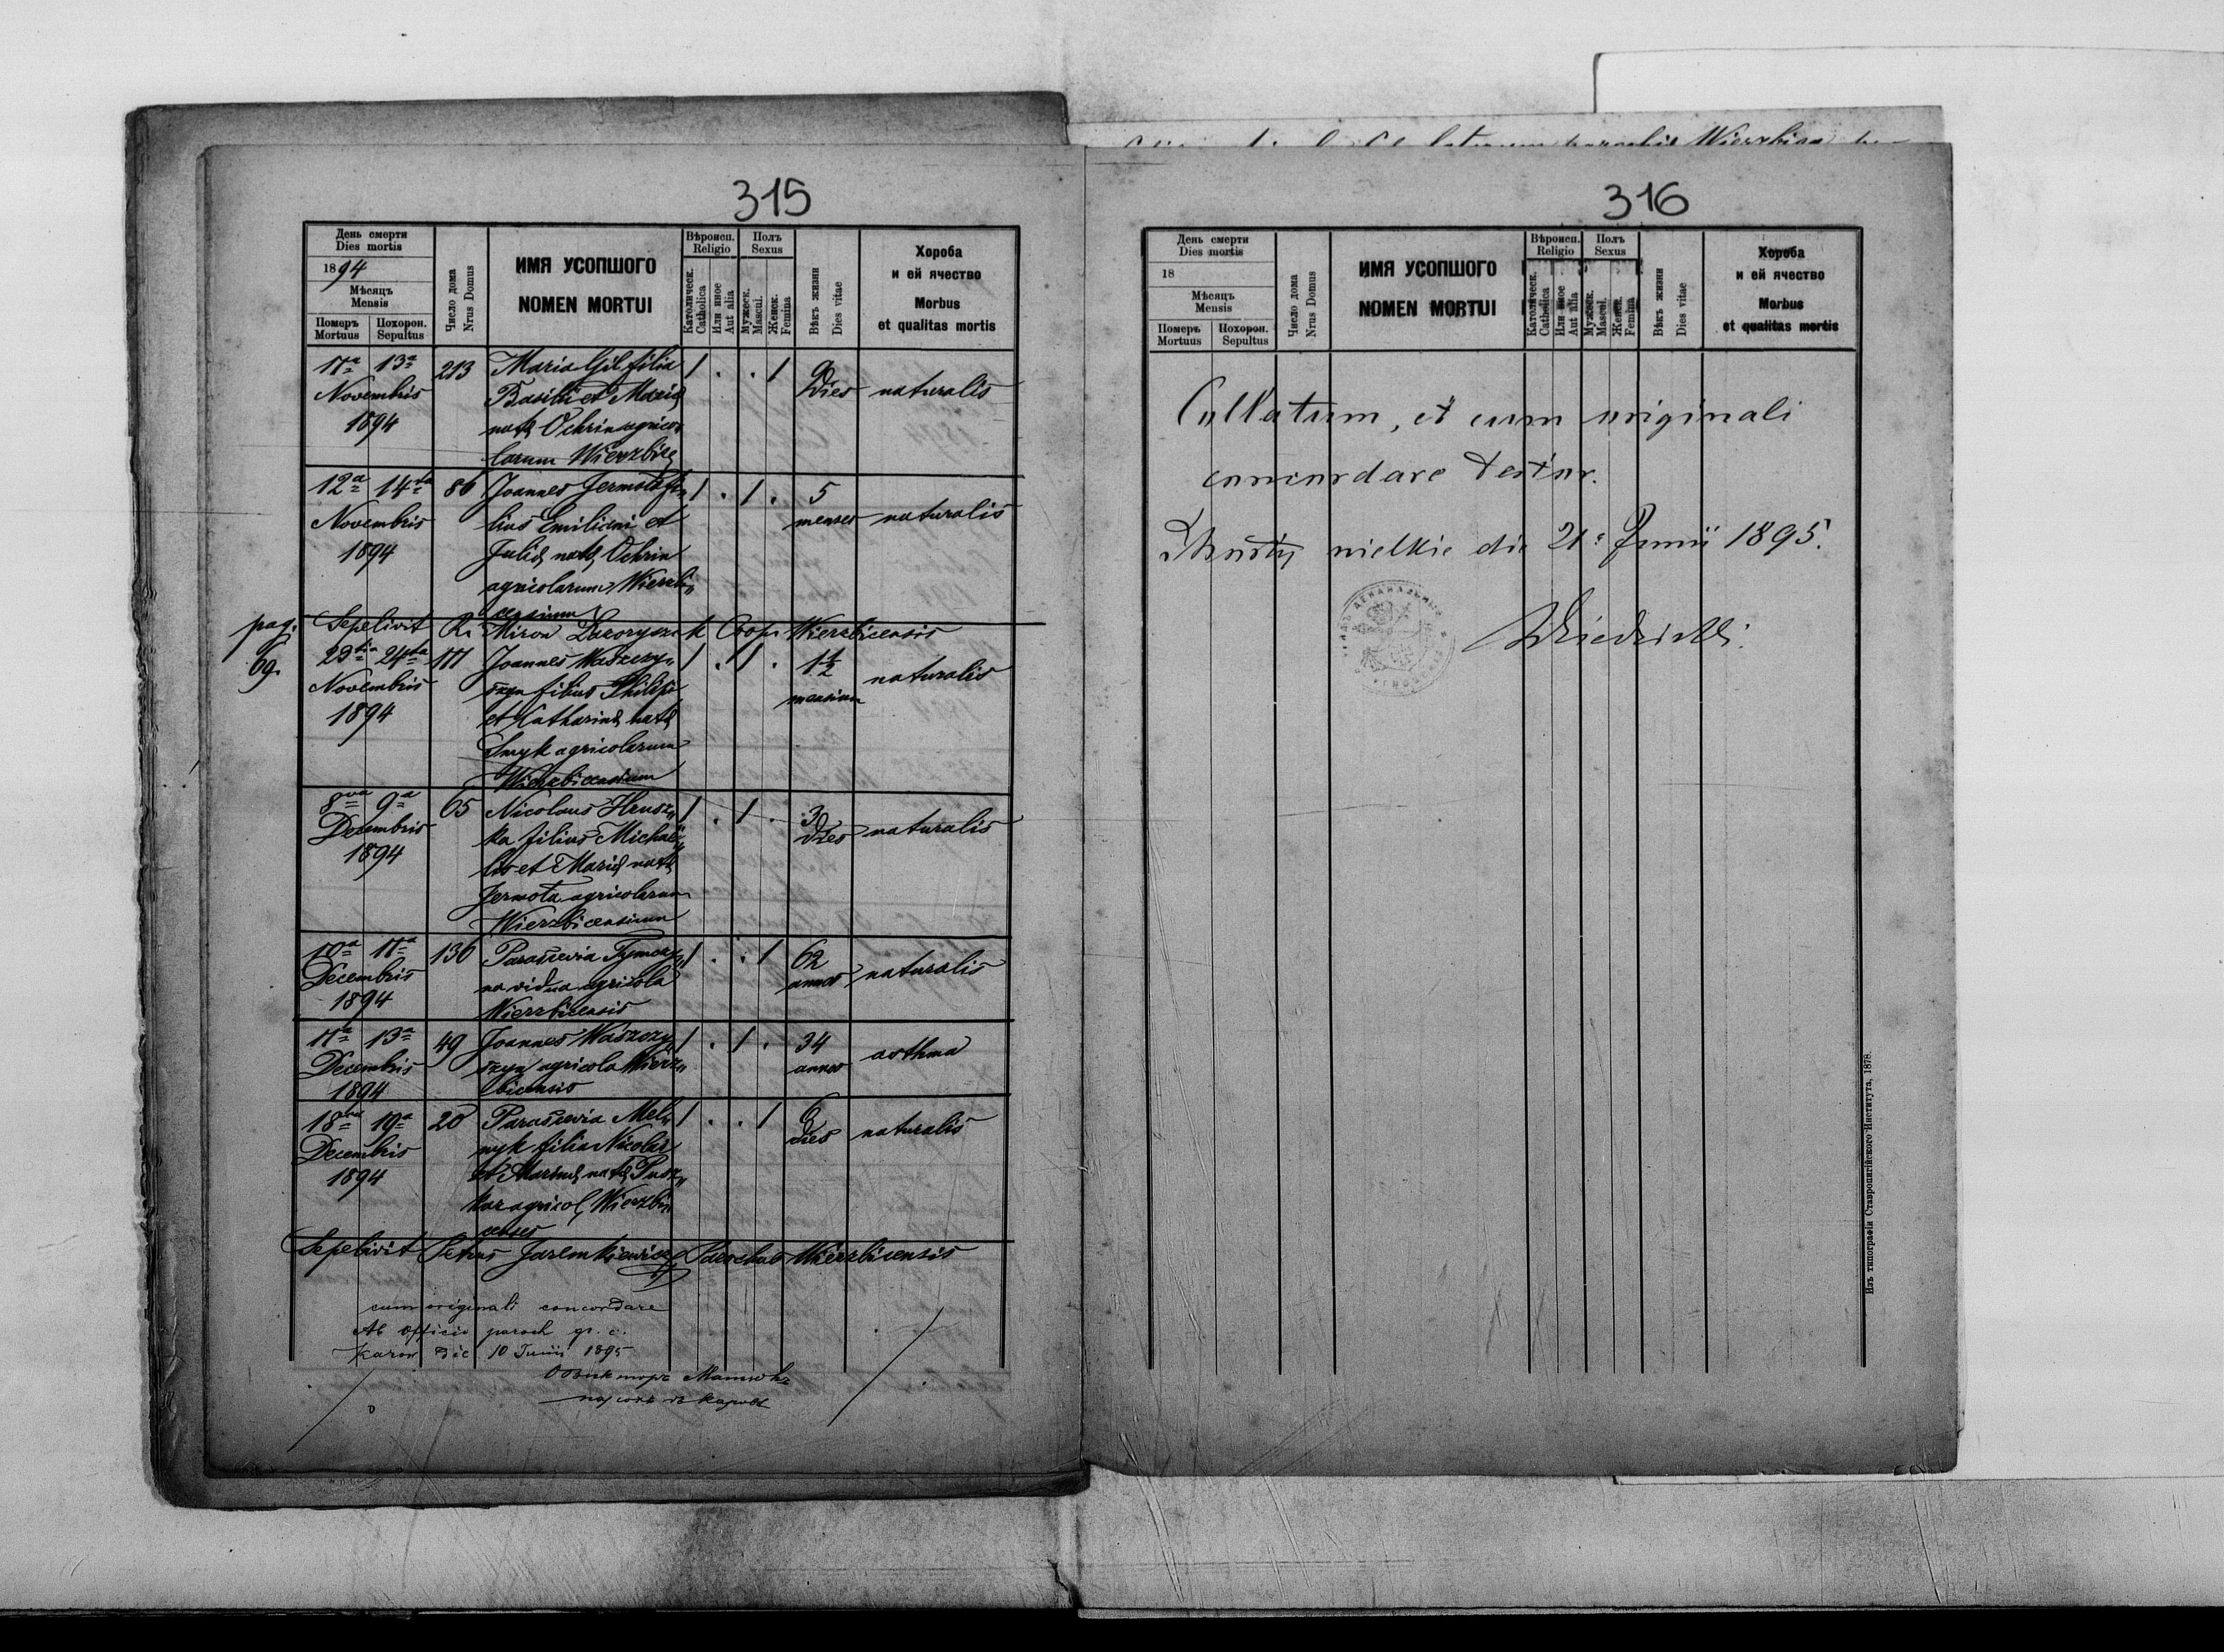 315
День смерти
Dies mortis
1894
Мѣсяцъ
Mensis
Померъ Похорон.
Mortuus Sepultus
Число дома
Nrus Domus
ИМЯ УСОПШОГО
NOMEN MORTUI
Вѣроисп.
Religio
Католическ.
Catholica
Или иное
Aut alia
Полъ
Sexus
Мужеск.
Mascul.
Женск.
Femina
Вѣкъ жизни
Dies vitae
Хороба
и ей ячество
Morbus
et qualitas mortis
11a 13a 213 Maria Gil filia 1 . . 1 9
Novembris Basilii et Mariæ Dies naturalis
1894 natæ Ochrin agrico„
larum Wierzbicæ
12a 14ta 86 Joannes Jermota fi„ 1 . 1 . 5
Novembris lius Emiliani et menses naturalis
1894 Juliæ natæ Ochrin
agricolarum Wierzbi„
censium
pag. Sepelivit R. Miron Coop. Wierzbicensis
69. 23tia 24ta 111 Joannes Waszczy„ 1 . 1 . 1½
Novembris szyn filius Philippi mensium naturalis
1894 et Catharinæ natæ
Smyk agricolarum
Wierzbicensium
8va 9a 65 Nicolaus Hrusz„ 1 . 1 . 3
Decembris ka filius Michae„ dies naturalis
1894 lis et Mariæ natæ
Jermota agricolarum
Wierzbicensium
10a 11a 136 Parascevia Tymczy„ 1 . . 1 62
Decembris na vidua agricola annos naturalis
1894 Wierzbicensis
11a 13a 49 Joannes Waszczy„ 1 . 1 . 34
Decembris szyn agricola Wierz„ annos asthma
1894 bicensis
18va 19a 20 Parascevia Mel„ 1 . . 1 6
Decembris nyk filia Nicolai dies naturalis
1894 et natæ Pusz„
kar agricol. Wierzbi„
censes
Sepelivit Petrus Jaremkiewicz Parochus Wierzbicensis
cum originali concordare
Ab officio paroch gr. c.
Karow Die 10 Junii 1895
316
День смерти
Dies mortis
18
Мѣсяцъ
Mensis
Померъ Похорон.
Mortuus Sepultus
Число дома
Nrus Domus
ИМЯ УСОПШОГО
NOMEN MORTUI
Вѣроисп.
Religio
Католическ.
Catholica
Или иное
Aut alia
Полъ
Sexus
Мужеск.
Mascul.
Женск.
Femina
Вѣкъ жизни
Dies vitae
Хороба
и ей ячество
Morbus
et qualitas mortis
Collatum, et cum originali
concordare testor.
die 21 Junii 1895.
Изъ типографіи Ставропигійского Института, 1878.